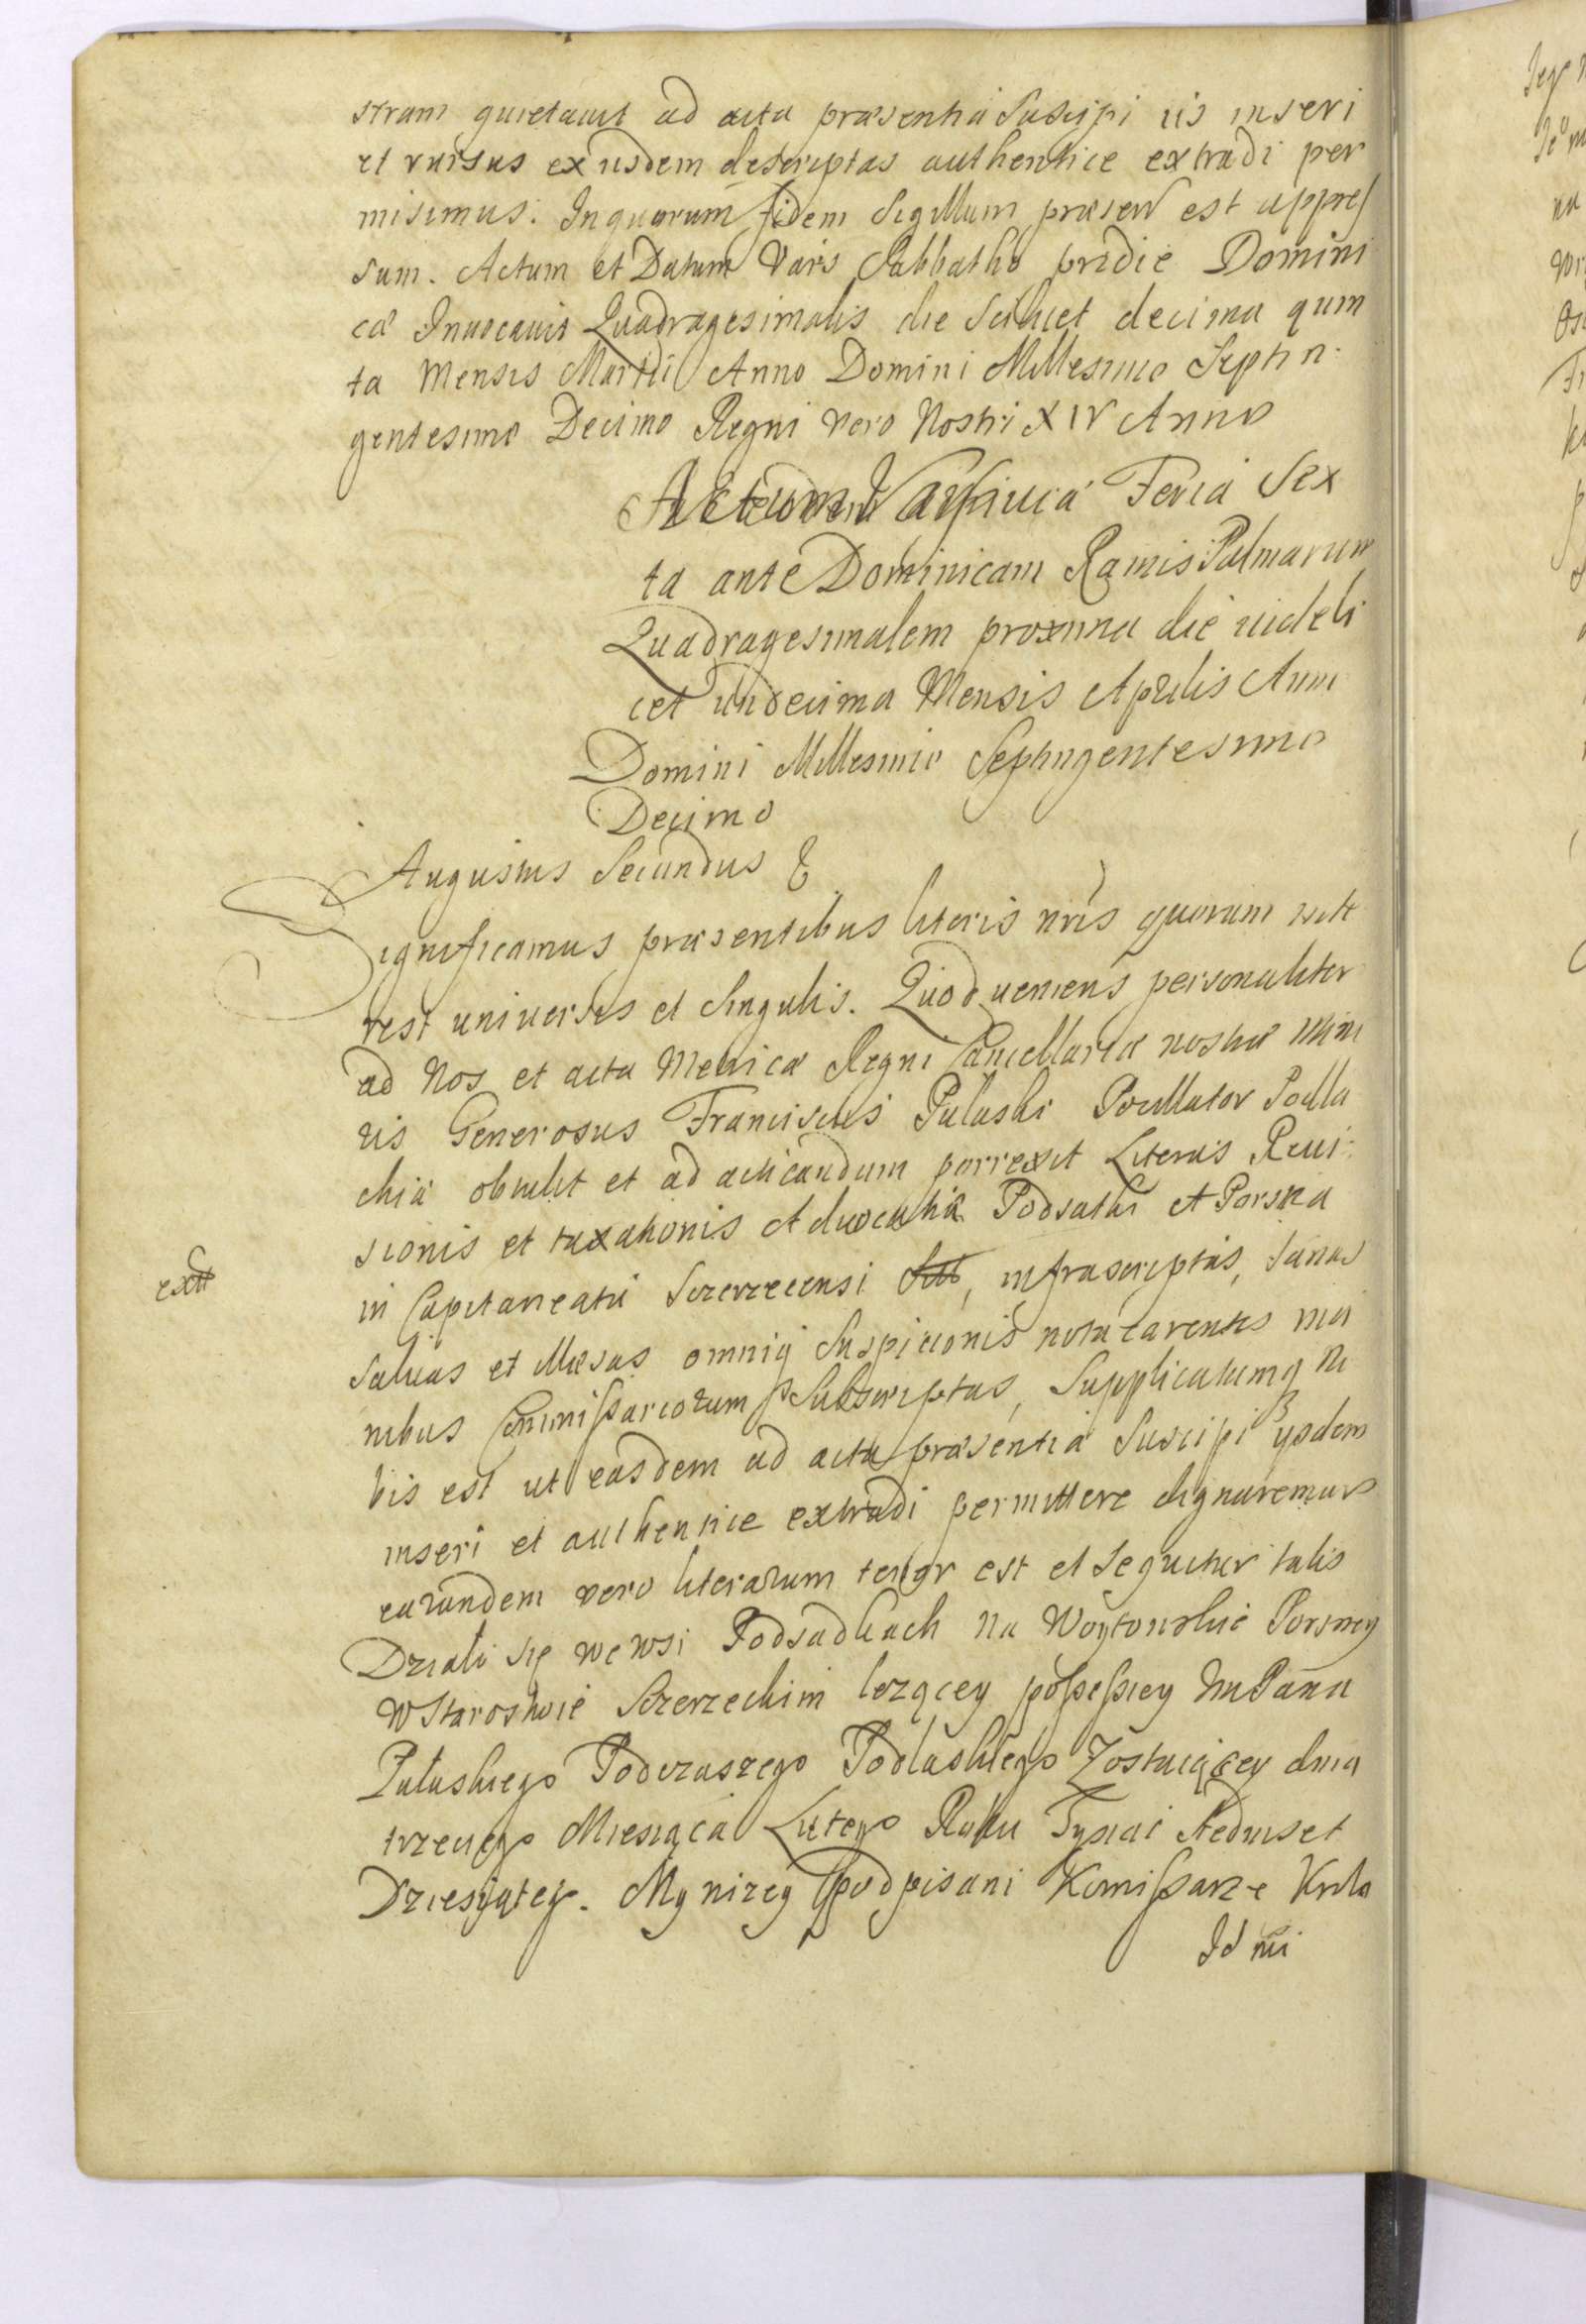 stram quietauit ad acta præsentia Suscipi iis inseri
et rursus ex iisdem descriptas authentice extradi per
misimus. In quorum fidem Sigillum præsen est appres
sum. Actum et Datum Vars Sabbatho pridie Domini
cæ Inuocauit Quadragesimalis die Scilicet decima quin
ta Mensis Martii Anno Domini Millesimo Septin
gentesimo Decimo Regni vero Nostri XIV Anno
Actum Varsauiæ Feria Sex
ta ante Dominicam Ramis Palmarum
Quadragesimalem proxima die uideli
cet undecima Mensis Aprilis Anno
Domini Millesimo Septingentesimo
Decimo
Augustus Secundus &
Significamus præsentibus literis nris quorum inte
rest universis et Singulis. Quod veniens personaliter
ad Nos et acta Metrica Regni Cancellariæ nostræ Mino
ris Generosus Franciscus Pulaski Pocillator Podla
chiæ obtulit et ad acticandum porrexit Literas Reui
sionis et taxationis Aduocatiæ Podsatki et Porszna
in Capitaneatu Szczerzecensi infrascriptas, sanas
saluas et illæsas omniq suspicionis nota carentes ma
nibus Commissariorum Subscriptas, Supplicatumq No
bis est ut easdem ad acta præsentia Suscipi ysdem
inseri et authentice extradi permittere dignaremur
earundem vero literarum tenor est et sequitur talis
Działo się we wsi Podsadkach na Woytowstwie Porsney
W Starostwie Szczerzeckim lezącey possessiey Jm Pana
Pułaskiego Podczaszego Podlaskiego Zostaiącey dnia
trzeciego Miesiąca Lutego Roku Tysiąc Siedmset
Dziesiątego. My nizey podpisani Komissarze Krola
Jd mi
extt